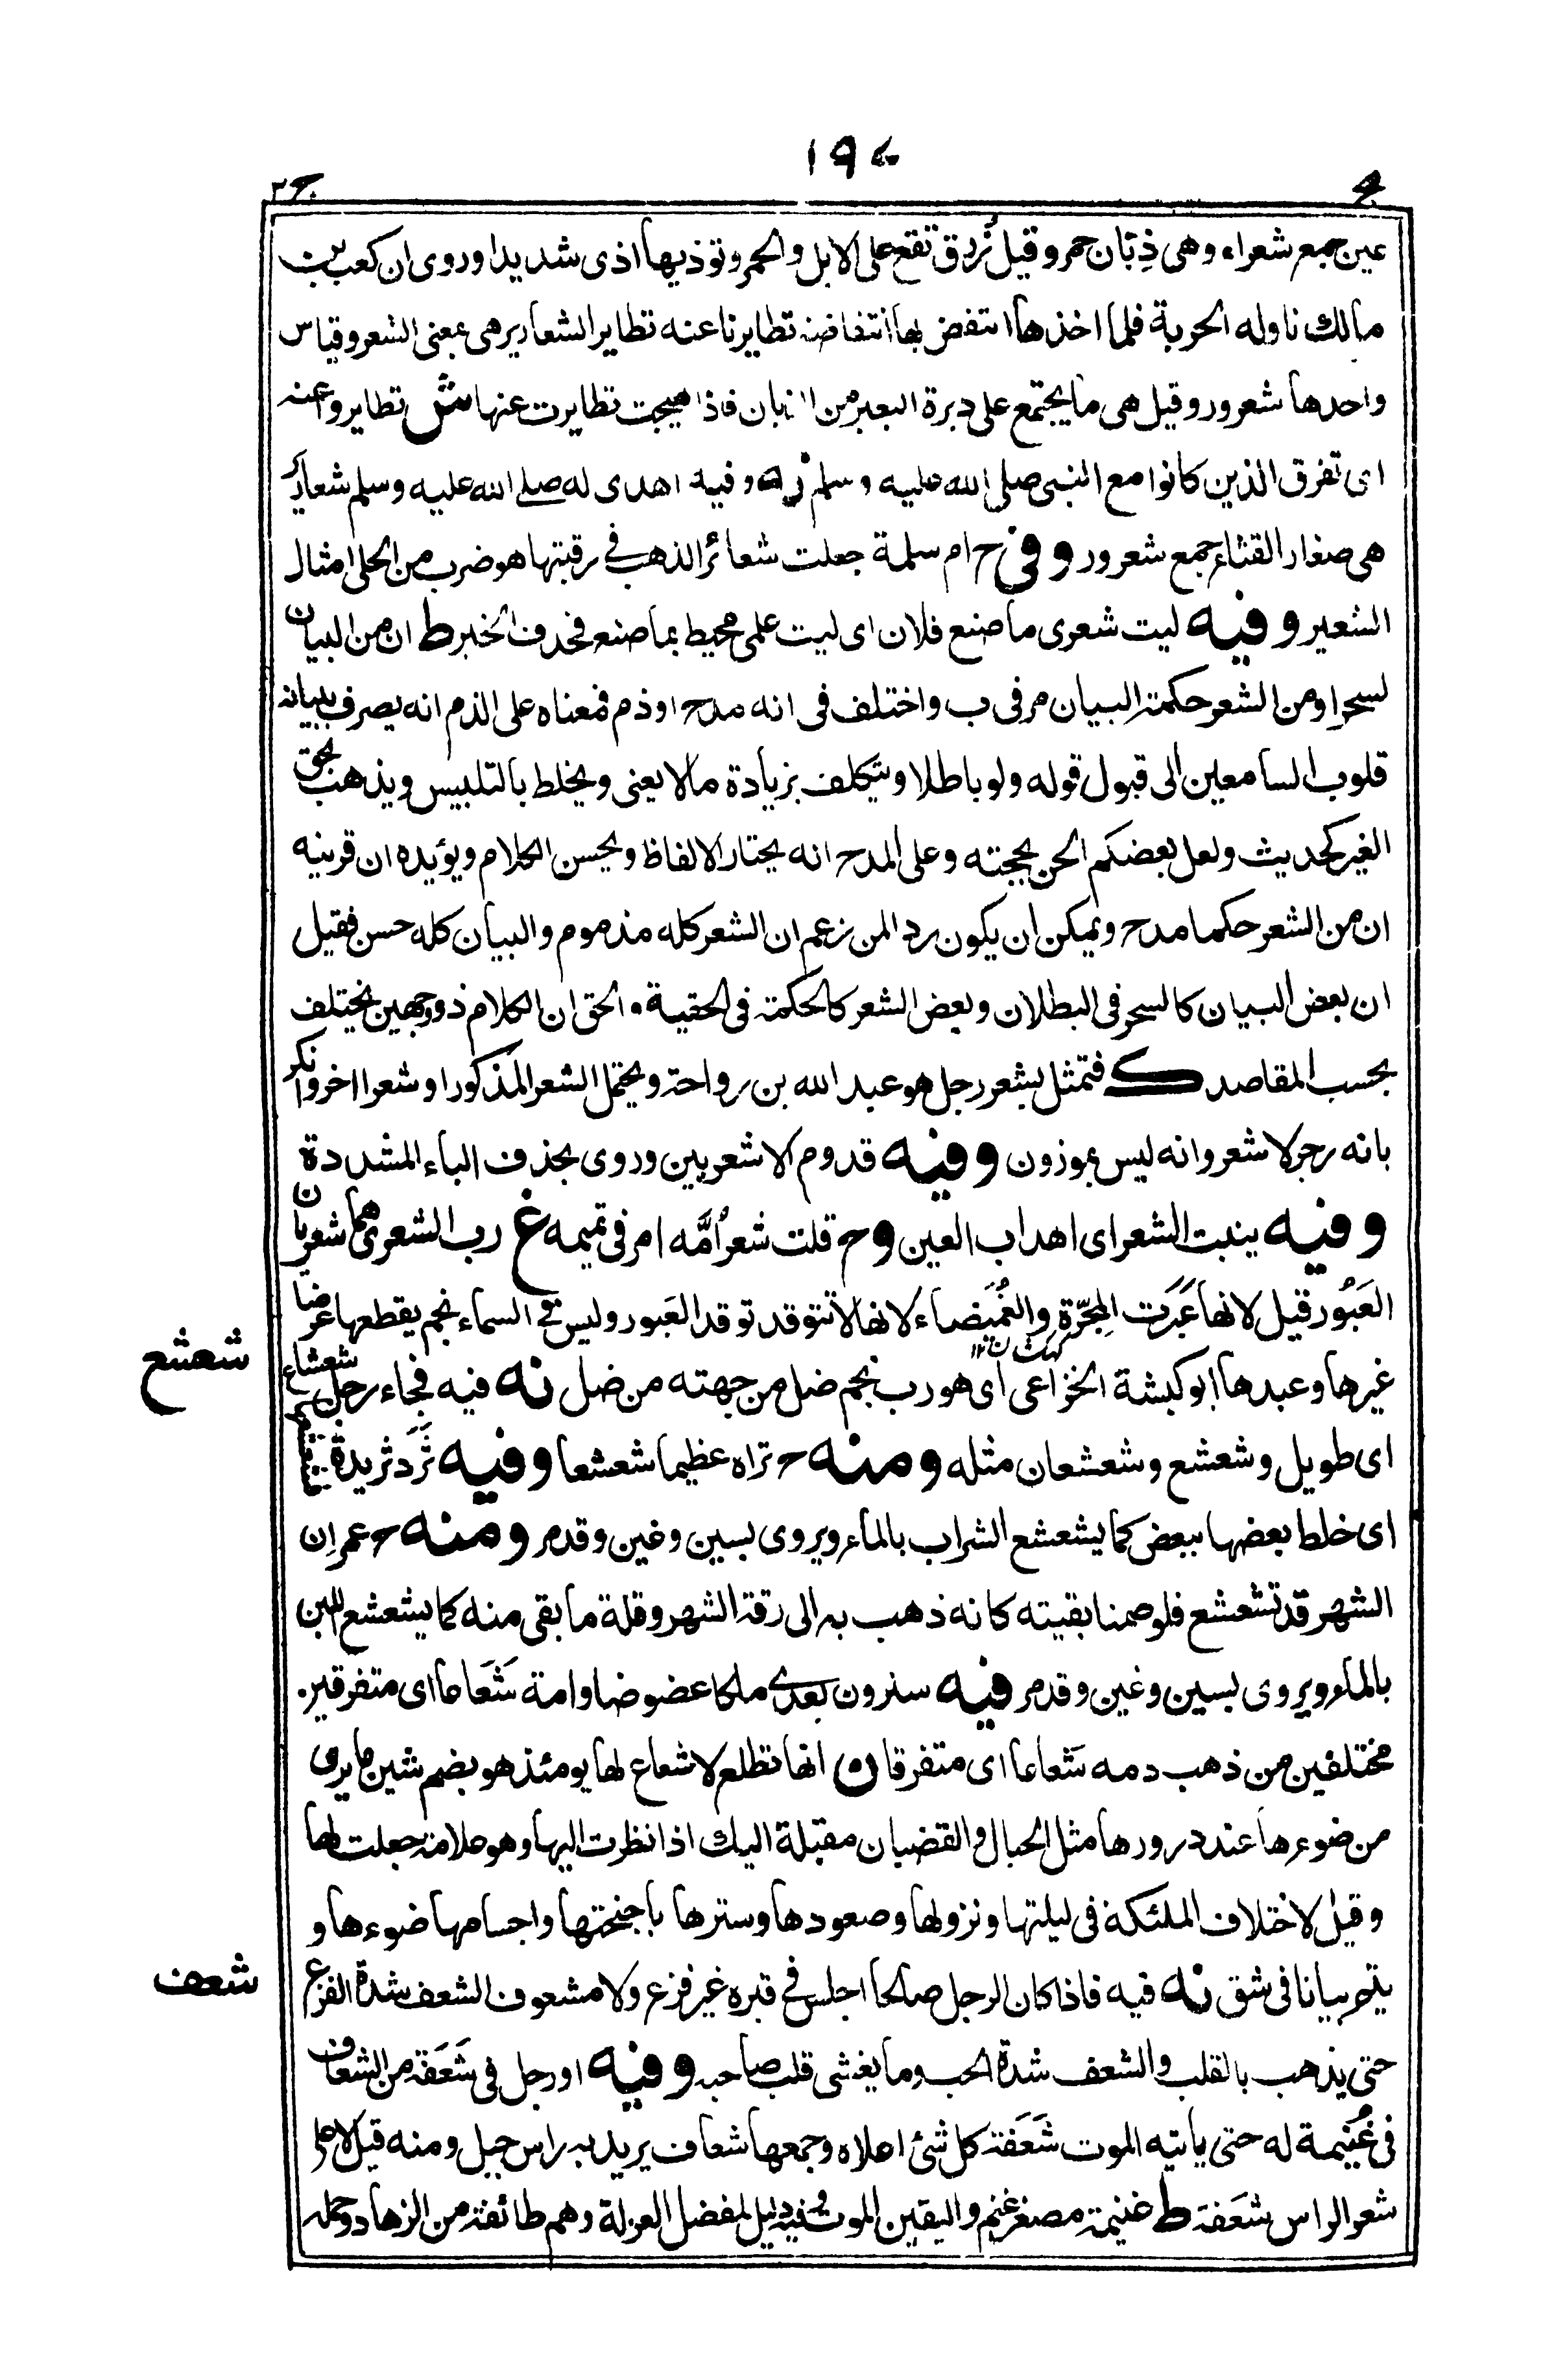 ١٩٧
ج٢
عين جمع شعراء وهى ذِبّان حمر وقيل زُرق تقع على الابل والحمر وتوذيها اذى شديدا وروى ان كعب بن
مالك ناوله الحربة فلما اخذها انتفض بها انتفاضة تطايرنا عنه تطاير الشعارير هى بمعنى الشعر وقياس
واحدها شعرور وقيل هى ما يجتمع على دبرة البعير من الذبان فاذا هيجت تطايرت عنها ش تطايروا عنه
اى تفرق الذين كانوا مع النبى صلى الله عليه وسلم نه وفيه اهدى له صلى الله عليه وسلم شعارير
هى صغار القثاء جمع شعرور وفى ح ام سلمة جعلت شعائر الذهب فى رقبتها هو ضرب من الحلى امثال
الشعير وفيه ليت شعرى ما صنع فلان اى ليت علمى محيط بما صنع فحذف الخبر ط ان من البيان
لسحرا ومن الشعر حكمة البيان مر فى ب واختلف فى انه مدح او ذم فمعناه على الذم انه يصرف ببيانه
قلوب السامعين الى قبول قوله ولو باطلا ويتكلف بزيادة ما لا يعنى ويخلط بالتلبيس ويذهب بحق
الغير كحديث ولعل بعضكم الحن بحجته وعلى المدح انه يختار الالفاظ ويحسن الكلام ويؤيده ان قرينه
ان من الشعر حكما مدح ويمكن ان يكون ردا لمن زعم ان الشعر كله مذموم والبيان كله حسن فقيل
ان بعض البيان كالسحر فى البطلان وبعض الشعر كالحكمة فى الحقية والحق ان الكلام ذو وجهين يختلف
بحسب المقاصد ك فتمثل بشعر رجل هو عبد الله بن رواحة ويحتمل الشعر المذكور او شعرا اخر وانكر
بانه رجز لا شعر وانه ليس بموزون وفيه قدوم الاشعريين وروى بحذف الياء المشددة
وفيه ينبت الشعر اى اهداب العين وح قلت شعر اُمَّه امر فى تميمه غ رب الشعرى هما شعريان
العَبُور قيل لانها عَبَرَت المِجَرّة والغُمَيضاء لانها لا تتوقد توقد العَبور وليس فى السماء نجم يقطعها عرضا
كهكشان ١٢
غيرها وعبدها ابو كبشة الخزاعى اى هو رب نجم ضل من جهته من ضل نه فيه فجاء رجل شعشاع
شعشع
اى طويل وشعشع وشعشعان مثله ومنه ح تراه عظيما شعشعا وفيه ثَرَدَ ثريدة فشعشعها
اى خلط بعضها ببعض كما يشعشع الشراب بالماء ويروى بسين وغين وقدمر ومنه ح عمر ان
الشهر قد تشعشع فلو صمنا بقيته كانه ذهب به الى رقة الشهر وقلة ما بقى منه كما يشعشع اللبن
بالماء ويروى بسين وغين وقدمر فيه سترون بعدى ملكا عضوضا وامة شَعَاعا اى متفرقين
مختلفين من ذهب دمه شَعاعا اى متفرقا ن انها تطلع لا شعاع لها يومئذ هو بضم شين ما يرى
من ضوءها عند ذرورها مثل الحبال والقضبان مقبلة اليك اذا نظرت اليها وهو علامة جعلت لها
وقيل لاختلاف الملئكة فى ليلتها ونزولها وصعودها وسترها باجنحتها واجسامها ضوءها و
يتم بيانا فى شق نه فيه فاذا كان الرجل صالحا اجلس فى قبره غير فزع ولا مشعوف الشعف شدة الفزع
شعف
حتى يذهب بالقلب والشعف شدة الحب وما يغشى قلب صاحبه وفيه او رجل فى شَعَفة من الشعاف
فى غُنيمة له حتى ياتيه الموت شَعَفة كل شئ اعلاه وجمعها شعاف يريد به راس جبل ومنه قيل لاعلى
شعر الراس شعَفة ط غنيمة مصغر غنم واليقين الموت وفيه دليل لمفضل العزلة وهم طائفة من الزهاد وحمله